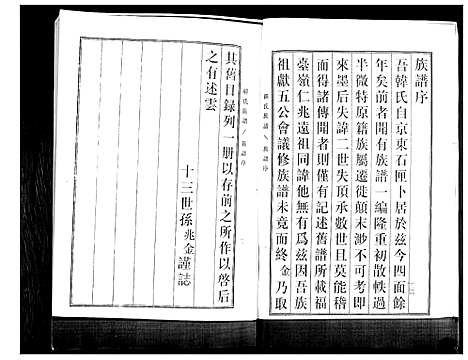 族譜序
吾韓氏自京東石匣卜居於玆今四面餘
年矣前者聞有族譜一編隆重初散軼過
半微特原籍族屬遷徙顛末涉不可考即
來墨后失諱二世失頂承數世且莫能稽
而得諸傳聞者則僅有記述舊譜所載福
臺嶺仁兆遠祖同諱他無有爲玆因吾族
祖獻五公會議修族譜未竟而終金乃取
韓氏族譜／族譜序
韓氏族譜／族譜序
其舊目錄列一册以存前之所作以啓后
之有述雲
十三世孫兆金謹誌